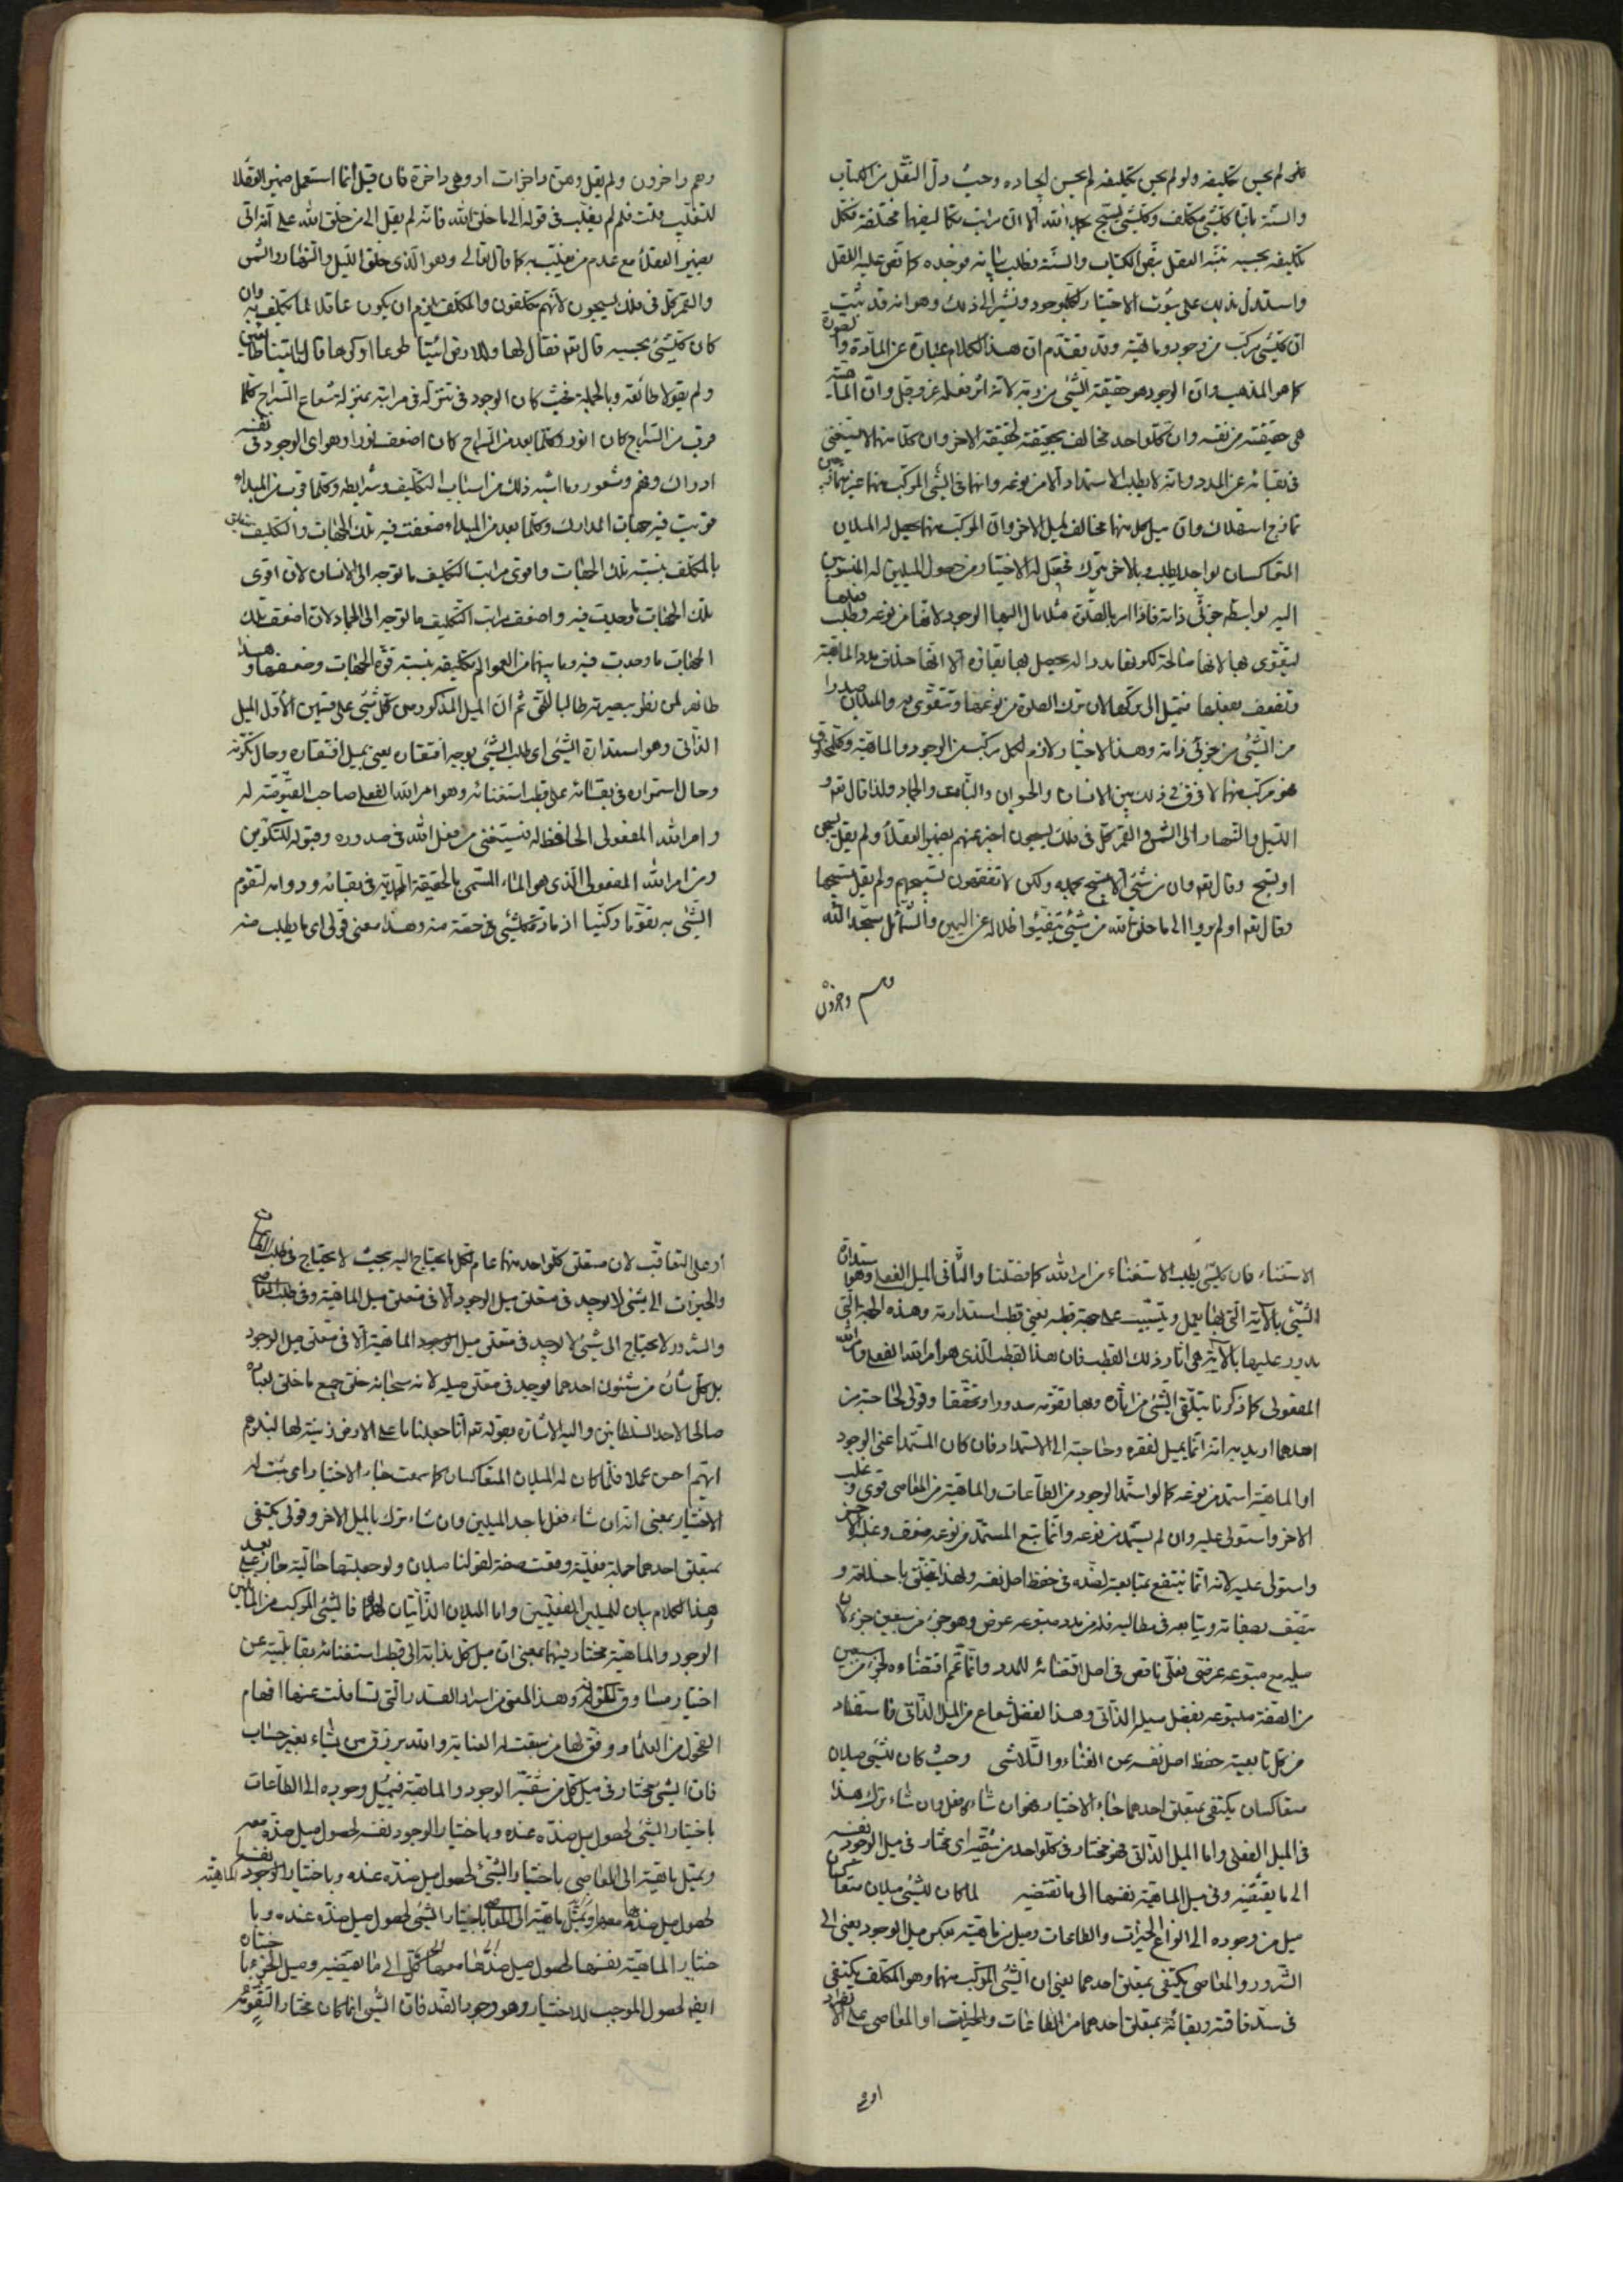 فلو لم يحسن تكليفه ولو لم يحسن تكليفه لم يحسن ايجاده وحيث دل النقل من الكتاب
والسنة بان كلشئ مكلف وكلشئ يسبح بحمد الله الا ان مراتب تكاليفها مختلفة فكل
تكليفه بحسبه نبه العقل بنص الكتاب والسنة فطلب بيانه فوجده كما نص عليه النقل
واستدل بذلك على ثبوت الاختيار لكل موجود ونشير الى ذلك وهو انه قد ثبت
ان كلشئ مركب من وجود وماهية وقد تقدم ان هذا الكلام عبارة عن المادة والصورة
كما هو المذهب وان الوجود هو حقيقة الشئ من ربه لانه اثر فعله عز وجل وان الماهية
هى حقيقته من نفسه وان كل واحد مخالف بحقيقته لحقيقة الاخر وان كلا منهما لا يستغنى
فى بقائه عن المدد وانه لا يطلب الاستمداد الا من نوعه وانهما فى الشئ المركب منهما غير متمايزين
تمازج استهلاك وان ميل كل منهما مخالف لميل الاخر وان المركب منهما يحصل له الميلان
المتعاكسان بواحد يطلب وبالاخر يترك فحصل له الاختيار من حصول الميلين له المنسوبين
اليه بواسطة جزئى ذاته فاذا امر بالصلوة مثلا مال اليها الوجود لانها من نوعه وطلب فعلها
ليتقوى بها لانها صالحة لكونها مددا له يحصل بها بقاؤه الا انها خلاف مدد الماهية
وتضعف بفعلها فتميل الى تركها لان ترك الصلوة من نوعها وتتقوى به والميلان صدرا
من الشئ من جزئى ذاته وهذا الاختيار لازم لكل مركب من الوجود والماهية وكل مخلوق
فهو مركب منهما لا فرق فى ذلك بين الانسان والحيوان والنبات والجماد ولذا قال تع و
الليل والنهار الى الشمس والقمر كل فى فلك يسبحون اخبر عنهم بضمير العقلاء ولم يقل يسبحن
او تسبح وقال تع وان من شئ الا يسبح بحمده ولكن لا تفقهون تسبيحهم ولم يقل تسبيحها
وقال تع اولم يروا الى ما خلق الله من شئ يتفيؤا ظلاله عن اليمين والشمائل سجدا لله
وهم داخرون
وهم داخرون ولم يقل وهن داخرات او وهى داخرة فان قيل انما استعمل ضمير العقلاء
للتغليب قلت فلم لم يغلب فى قوله الى ما خلق الله فانه لم يقل الى من خلق الله على انه اتى
بضمير العقلاء مع عدم من يغلب به كما قال تعالى وهو الذى خلق الليل والنهار والشمس
والقمر كل فى فلك يسبحون لانهم مكلفون والمكلف يلزم ان يكون عاقلا لما كلف به وان
كان كلشئ بحسبه قال تع فقال لها وللارض ائتيا طوعا او كرها قالتا اتينا طائعين
ولم يقولا طائعة وبالجملة فحيث كان الوجود فى تنزله فى مراتبه بمنزلة شعاع السراج كلما
قرب من السراج كان انور وكلما بعد من السراج كان اضعف نورا وهو اى الوجود فى نفسه
ادراك وفهم وشعور وما اشبه ذلك من اسباب التكليف وشرايطه وكلما قرب من المبداء
قويت فيه جهات المدارك وكلما بعد من المبداء ضعفت فيه تلك الجهات والتكليف يتعلق
بالمكلف بنسبة تلك الجهات واقوى مراتب التكليف ما توجه الى الانسان لان اقوى
تلك الجهات ما وجدت فيه واضعف مراتب التكليف ما توجه الى الجماد لان اضعف تلك
الجهات ما وجدت فيه وما بينهما من العوالم تكليفه بنسبة قوة الجهات وضعفها وهذا
ظاهر لمن نظر ببصيرته طالبا للحق ثم ان الميل المذكور من كل شئ على قسمين الاول الميل
الذاتى وهو استدارة الشئ اى طلب الشئ بوجه افتقاره يعنى بميل افتقاره وحال تكونه
وحال استمراره فى بقائه على قطب استغنائه وهو امر الله الفعلى صاحب القيومية له
وامر الله المفعولى الحافظ له فيستغنى من فعل الله فى صدوره وقبوله للتكوين
ومن امر الله المفعولى الذى هو الماء المسمى بالحقيقة المحمدية فى بقائه ودوامه لتقوم
الشئ به تقوما ركنيا اذ مادة كلشئ فى حصة منه وهذا معنى قولى اى ما يطلب منه
الاستغناء فان كلشئ يطلب الاستغناء من امر الله كما فصلنا والثانى الميل الفعلى وهو استدارة
الشئ بالآية التى بها يعمل ويتسبب على جهة قطبه يعنى قطب استدارته وهذه الجهة التى
يدور عليها بالآية هى اثار ذلك القطب فان هذا القطب الذى هو امر الله الفعلى وامر الله
المفعولى كما ذكرنا يتلقى الشئ من اثاره وبها تقومه صدورا وتحققا وقولى لحاجة من
احدهما اريد به انه انما يميل لفقره وحاجته الى الاستمداد فان كان المستمد اعنى الوجود
او الماهية استمد من نوعه كما لو استمد الوجود من الطاعات والماهية من المعاصى قوى وغلب
الاخر واستولى عليه وان لم يستمد من نوعه وانما تبع المستمد من نوعه ضعف وغلبه الاخر
واستولى عليه لانه انما ينتفع بمتابعة لضده فى حفظ اصل نفسه ولهذا يتخلق باخلاقه و
يتصف بصفاته ويتابعه فى مطالبه فله من مدد متبوعه عرض وهو جزء من سبعين جزءا لان
ميله مع متبوعه عرضى فعلى ناقص فى اصل اقتضائه للمدد وانما تمم اقتضاءه لجزء من سبعين
من الصفة متبوعه بفضل ميله الذاتى وهذا الفضل شعاع من الميل الذاتى فاستفاد
من كل تابعيته حفظ اصل نفسه عن الفناء والتلاشى وحيث كان للشئ ميلان
متعاكسان يكتفى بمتعلق احدهما جاء الاختيار فهو ان شاء فعل وان شاء ترك هذا
فى الميل الفعلى واما الميل الذاتى فهو مختار فى كل واحد من شقيه اى مختار فى ميل الوجود نفسه
الى ما يقتضيه وفى ميل الماهية نفسها الى ما تقتضيه لما كان للشئ ميلان متعاكسان
ميل من وجوده الى انواع الخيرات والطاعات وميل من ماهيته بعكس ميل الوجود يعنى الى
الشرور والمعاصى يكتفى بمتعلق احدهما يعنى ان الشئ المركب منهما وهو المكلف يكتفى
فى سد فاقته وبقائه بمتعلق احدهما من الطاعات والخيرات او المعاصى على الانفراد
او على
او على التعاقب لان متعلق كل واحد منهما عام لكل ما يحتاج اليه بحيث لا يحتاج فى طلب الطاعات
والخيرات الى شئ لا يوجد فى متعلق ميل الوجود الا فى متعلق ميل الماهية وفى طلب المعاصى
والشرور لا يحتاج الى شئ لا يوجد فى متعلق ميل الماهية الا فى متعلق ميل الوجود
بل كل شأن من شئون احدهما يوجد فى متعلق ميله لانه سبحانه خلق جميع ما خلق لعباده
صالحا لاحد السلطانين واليه الاشارة بقوله تع انا جعلنا ما على الارض زينة لها لنبلوهم
ايهم احسن عملا فلما كان له الميلان المتعاكسان كما سمعت جاء الاختيار اى ثبت له
الاختيار بمعنى انه ان شاء فعل باحد الميلين وان شاء ترك بالميل الاخر وقولى يكتفى
بمتعلق احدهما جملة فعلية وقعت صفة لقولنا ميلان ولو جعلتها حالية جاز على بعد
وهذا الكلام بيان للميلين الفعليين واما الميلان الذاتيان فالشئ المركب من
الوجود والماهية مختار فيهما بمعنى ان ميل كل بذاته الى قطب استغنائه بقابلية عن
اختيار مساوق لكونه وهذا المعنى من اسرار القدر التى تسافلت عنها افهام
الفحول من العلماء ووفق لها من سبقت له العناية والله يرزق من يشاء بغير حساب
فان الشئ مختار فى ميل كل من شقيه الوجود والماهية فيميل وجوده الى الطاعات
باختيار الشئ لحصول ميل ضده عنده وباختيار الوجود نفسه لحصول ميل ضده معه
وتميل ماهيته الى المعاصى باختيار الشئ لحصول ميل ضده عنده وباختيار الماهية نفسها
لحصول ميل ضدها معها وتميل ماهيته الى المعاصى باختيار الشئ لحصول ميل ضده عنده وبا
ختيار الماهية نفسها لحصول ميل ضدها معها الى ما يقتضيه وميل الجزء باختياره
ايضا لحصول الموجب للاختيار وهو وجود الضد فان الشئ انما كان مختارا لتقومه